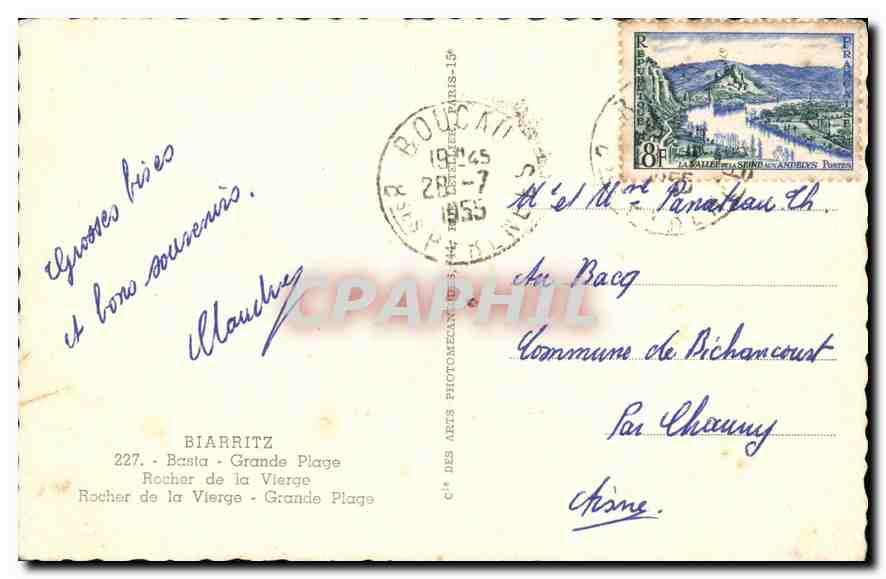 Grosses bises
et bons souvenirs.
BIARRITZ
227. - Basta - Grande Plage
Rocher de la Vierge
Rocher de la Vierge - Grande Plage
Cie DES ARTS PHOTOMECANIQUES, 44, PARIS-15e
BOUCAU
19H45
28 -7
1955
Bses PYRENEES
REPUBLIQUE FRANCAISE
8F
LA VALLEE DE LA SEINE AUX ANDELYS POSTES
CPAPHIL
Mr et Mme Th.
Au Bacq
Commune de Bichancourt
Par Chauny
Aisne.